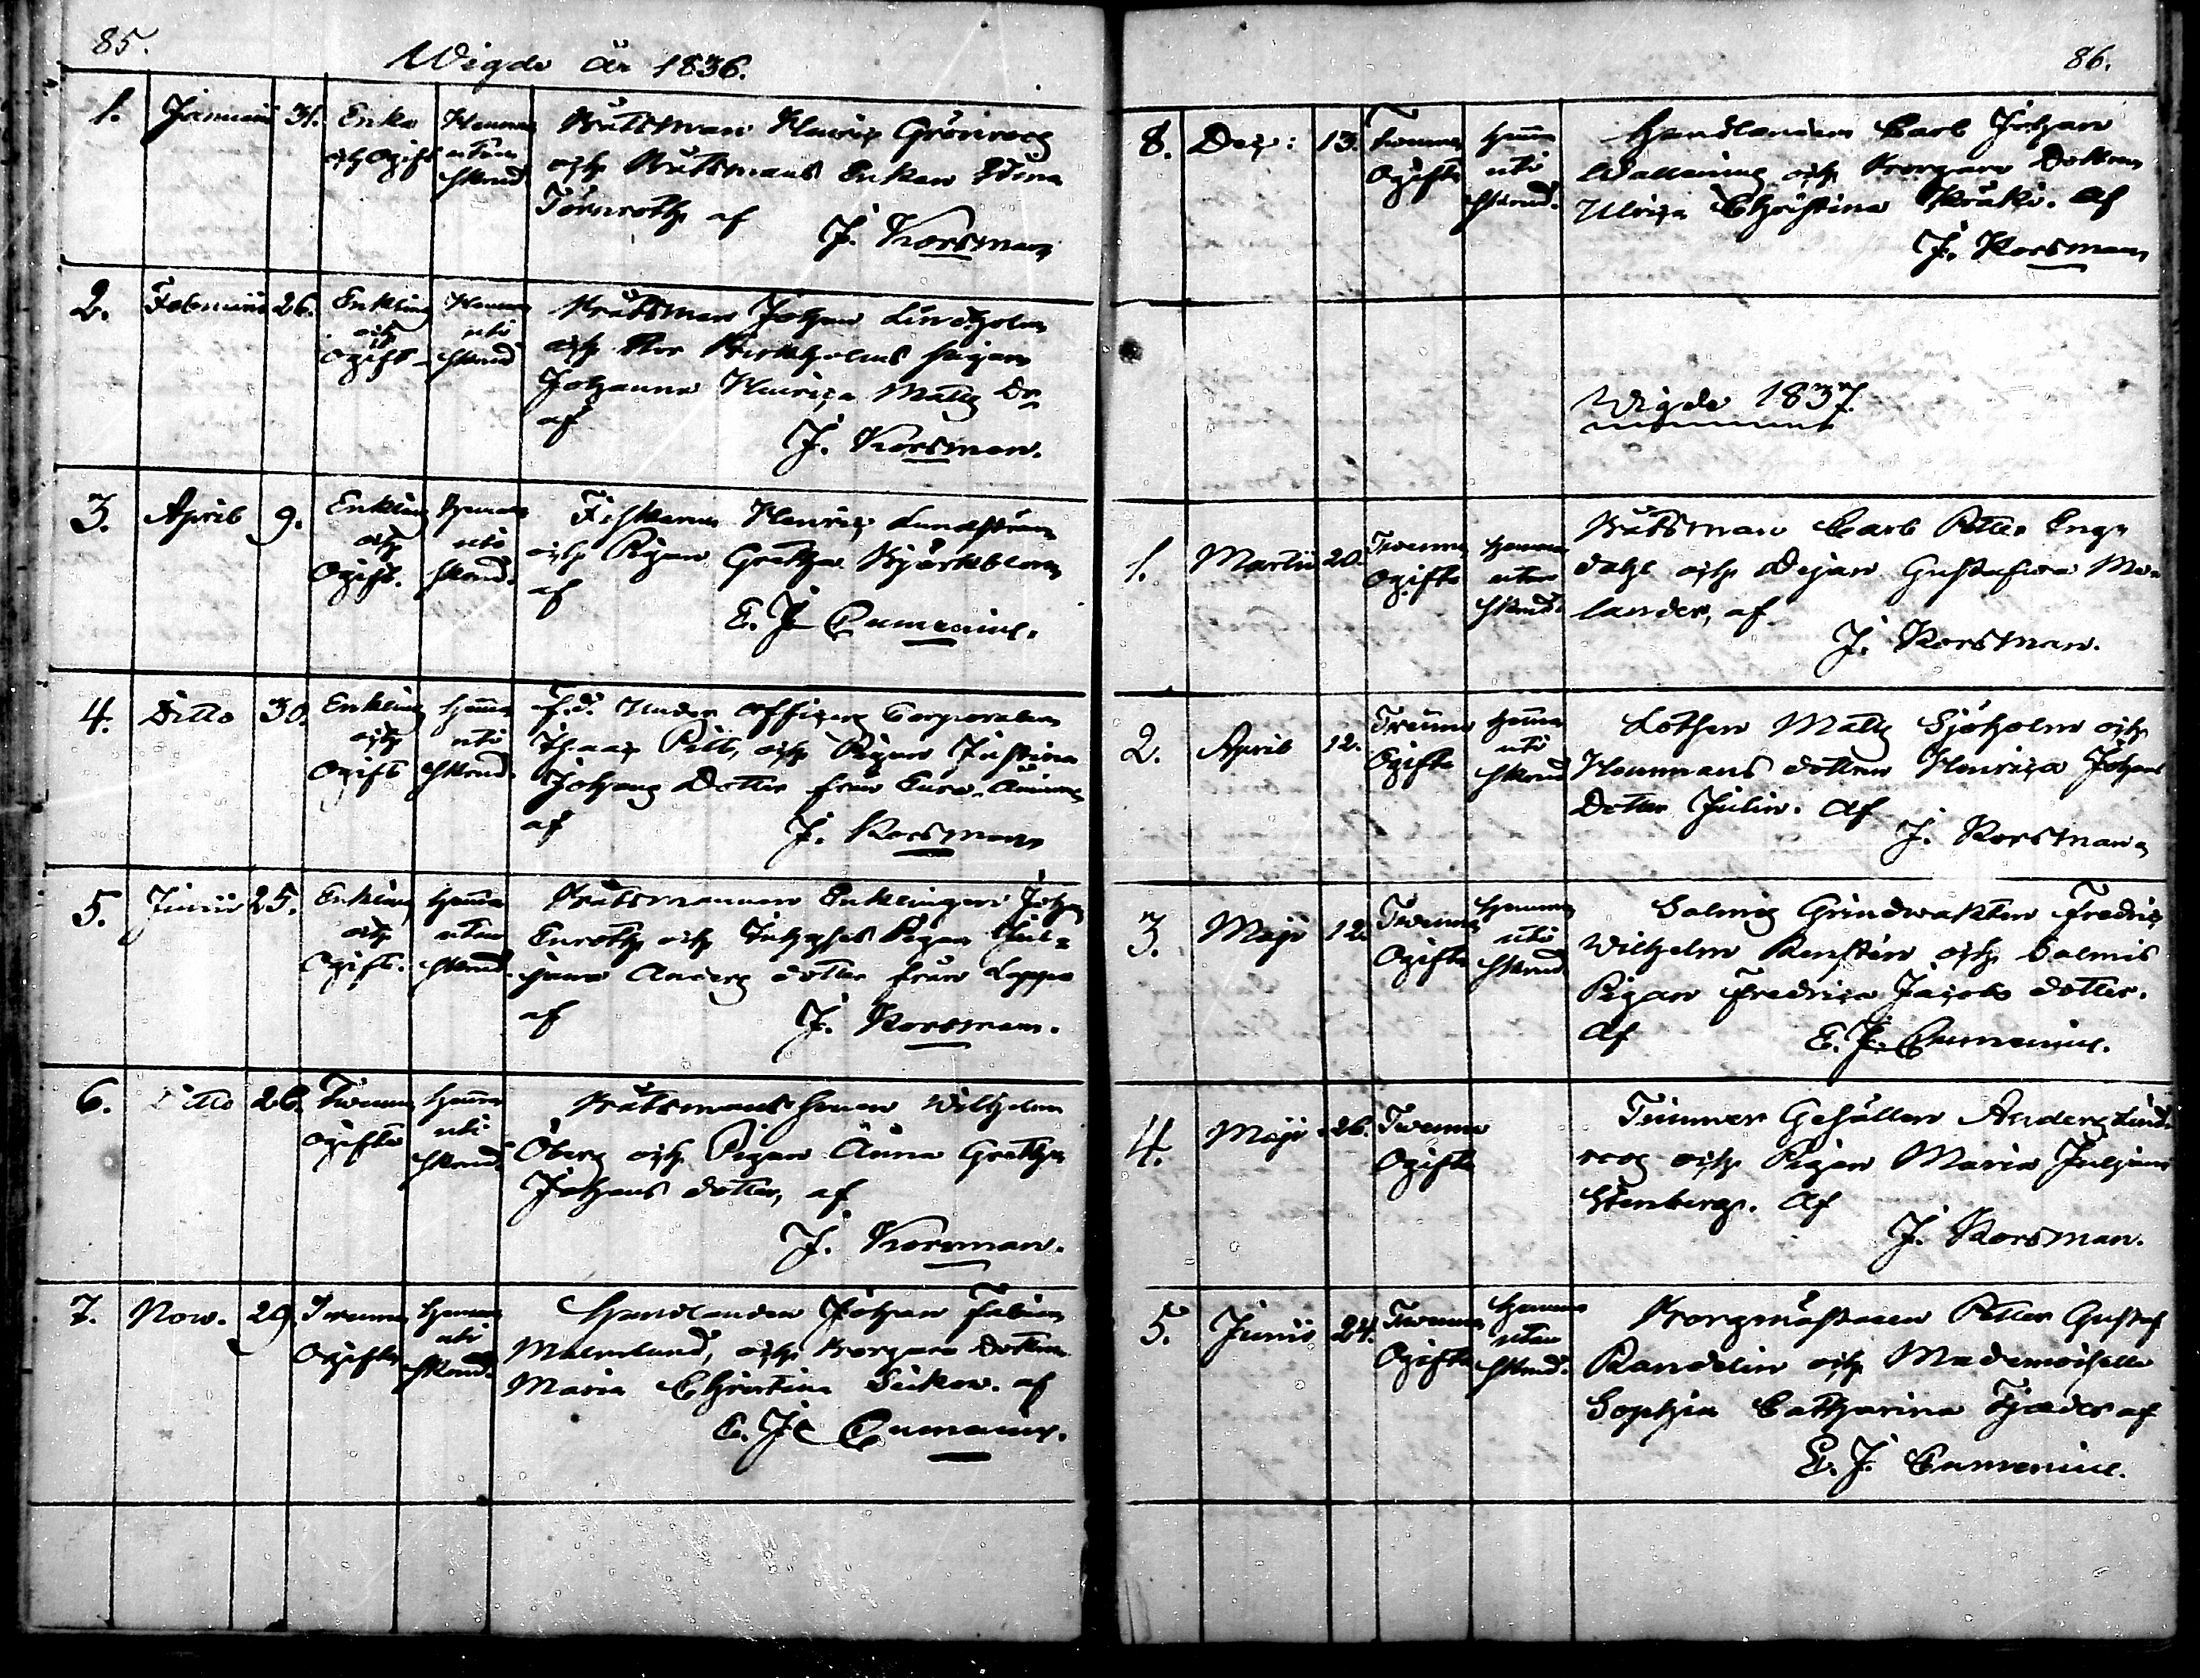 85.
Wigde år 1836.
1. Januarii 31. Enka och Ogift Hemma utan skrud
Båtsman Henric Grönroos
och Båtsmans Enkan Stina
Törnroth af
J. Korsman
2. Februarii 26. Enkling och Ogift Hemma uti skrud
Båtsman Johan Lindholm
och Pigan
Johanna Henrica Matts Dr
af
J. Korsman.
3. April 9. Enkling och Ogift. Hemma uti skrud.
Fiskaren Henric Lundström
och Pigan Gretha Björkblom
af
E. J. Cumenius.
4. Ditto 30. Enkling och Ogift Hemma uti skrud.
f.d. Under officers Corporalen
Isaac Pitt, och Pigan Justina
Johans Dotter från
af
J. Korsman
5. Junii 25. Enkling och Ogift. Hemma utan skrud.
Båtsmannen Enklingen Johan
Enroth och Pigan Jul-
jana Anders dotter från Lappo
af
J. Korsman.
6. Ditto 26. Twenne ogifta Hemma uti skrud.
Båtsmans sonen Wilhelm
Öberg och Pigan Anna Gretha
Johans dotter, af
J. Korsman.
7. Now. 29. Twenne Ogifta Hemma uti skrud.
Handlanden Johan Fabian
Malmlund, och Borgare Dottren
Maria Christina af
E. J. Cumenius.
86.
8. Dec: 13. Twenne Ogifta Hemma uti skrud.
Handlanden Carl Johan
Wallening och Borgare Dottren
Ulrica Christina Af
J. Korsman
Wigde 1837.
1. Martii 20. Twenne Ogifta Hemma utan skrud.
Båtsman Carl Petter Eng-
dahl och Pigan Gustafwa Me-
lander, af
J. Korsman.
2. April 12. Twenne Ogifta Hemma uti skrud
Lotsen Matts Sjöholm och
Hemmans dottren Henrica Johans
Dotter Julin. Af
J. Korsman
3. Maji 12. Twenne Ogifta Hemma uti skrud
Salmis Grindwakten Fredric
Wilhelm Renstén och Salmis
Pigan Fredrica Jacobs dotter.
Af E. J. Cumenius.
4. Maji 26. Twenne Ogifta
Timmer Gesällen Anders Lind-
roos och Pigan Maria Juljana
Stenberg. Af
J. Korsman.
5. Junii 24. Twenne Ogifta Hemma utan skrud.
Borgmästaren Petter Gustaf
Randelin och Mademoiselle
Sophia Catharina Tjæder af
E. J. Cumenius.